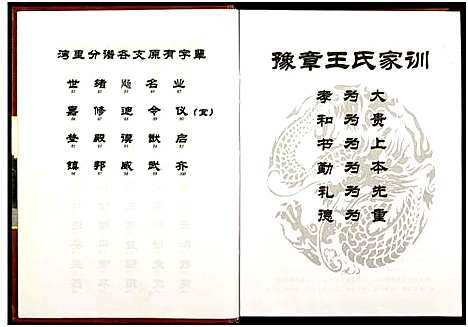 湾里分谱各支原有字辈
世 绪 飚 名 业
嘉 修 迪 令 仪(宜)
登 殿 谟 猷 启
镇 邦 威 武 齐
豫章王氏家训
孝为大
和为贵
书为上
勤为本
礼为先
德为重